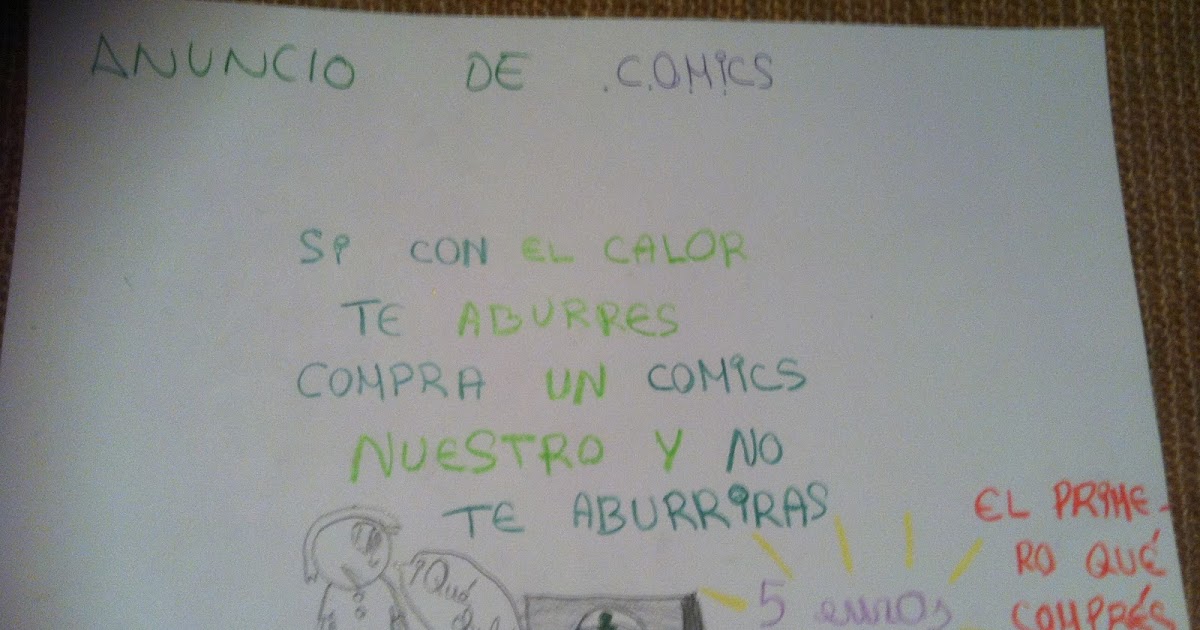 ANUNCIO DE COMICS
Si CON EL CALOR
TE ABURRES
COMPRA UN COMiCS
NUESTRO Y NO
TE ABURRiRAS
EL PRiME-
RO QUÉ
COMPRÉS
5 euros
¿Qué